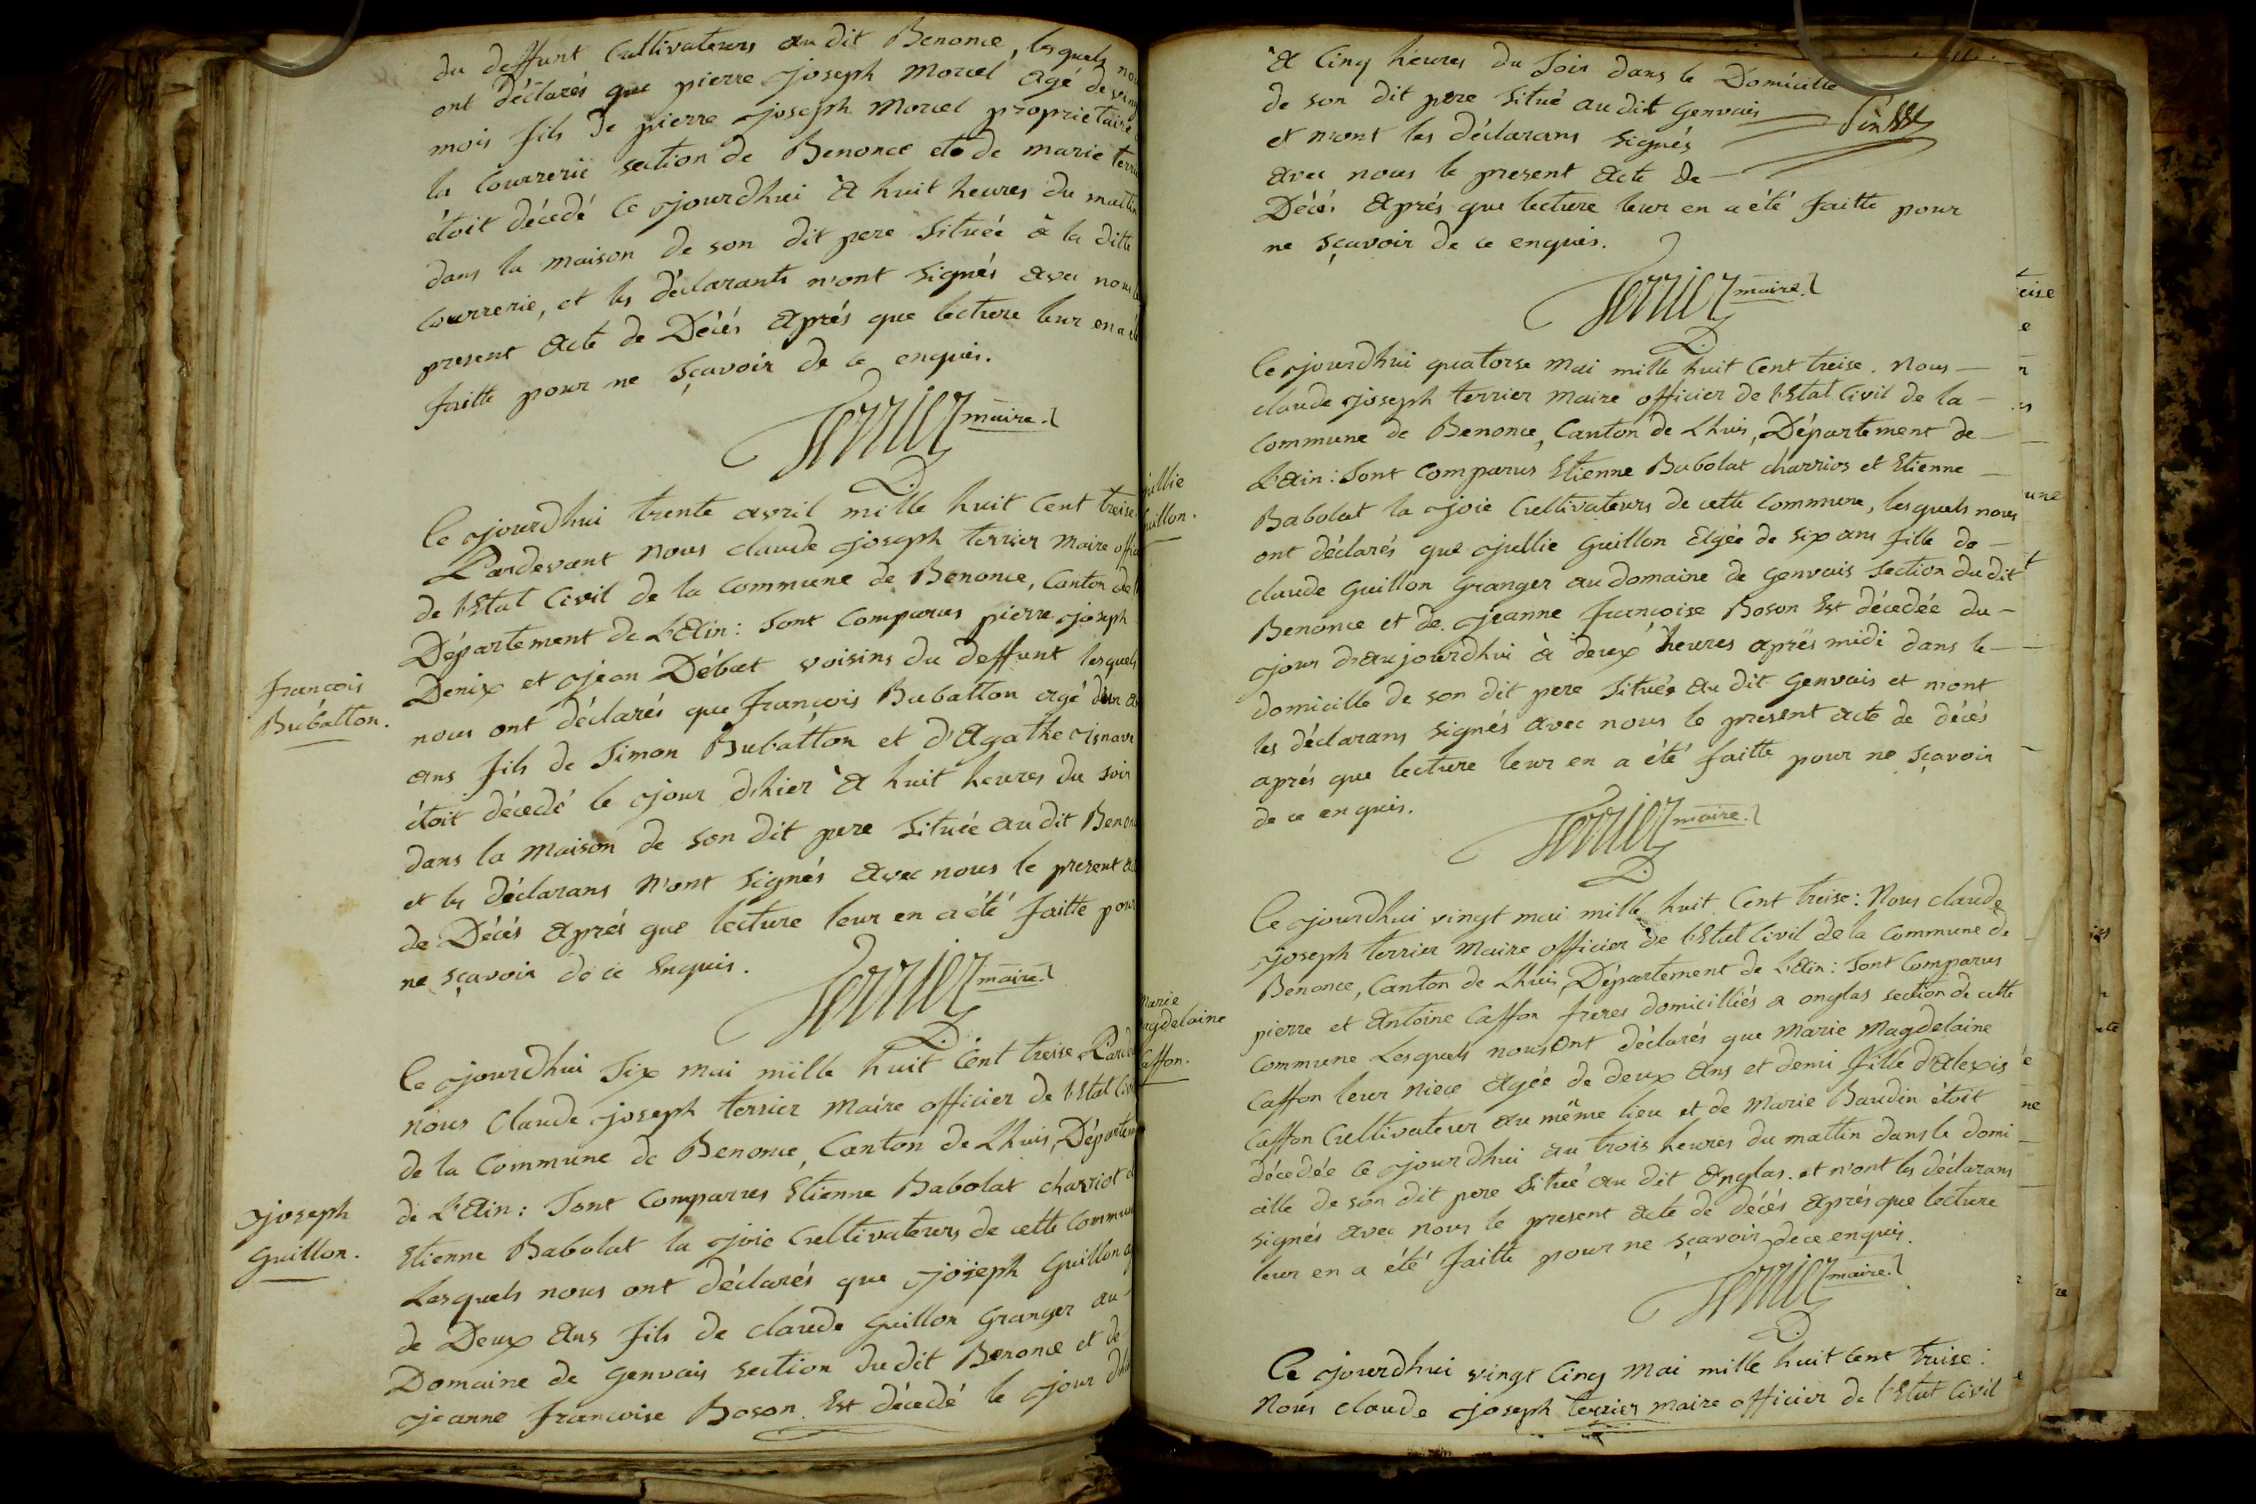 du deffunt Cultivateurs au dit Benonce, lesquels
ont déclarés que pierre joseph Morcel agé de
mois fils de pierre joseph Morcel proprietaire
la Courrerie section de Benonce et de marie
étoit décedé ce jourdhui à huit heures du mattin
dans la maison de son dit pere Située à la ditte
Courrerie, et les déclarants n'ont Signés avec nous
present acte de Décés Aprés que lecture leur en a
faitte pour ne sçavoir de ce enquis.
Terrier maire.
Ce jourdhui trente avril mille huit Cent treise
Pardevant Nous claude joseph terrier Maire
de l'Etat Civil de la Commune de Benonce, Canton de
Département de L'Ain: Sont Comparus pierre joseph
Denix et jean Débat voisins du deffunt lesquels
françois
Bubatton.
nous ont déclarés que françois Bubatton agé
ans fils de Simon Bubatton et d'Agathe
étoit décedé le jour d'hier à huit heures du soir
dans la Maison de son dit pere Située au dit
et les déclarans N'ont Signés avec nous le present
de Décés Aprés que lecture leur en a été faitte pour
ne sçavoir de ce Enquis.
Terrier maire.
Ce jourdhui Six mai mille huit Cent treise
nous Claude joseph terrier Maire officier de l'Etat
de la Commune de Benonce, Canton de Lhuis,
de L'Ain: Sont Comparus Etienne Babolat charriot
joseph
Guillon.
Etienne Babolat la joie Cultivateurs de cette
Lesquels nous ont déclarés que joseph Guillon
de Deux Ans fils de claude Guillon Granger au
Domaine de Genvais section du dit Benonce et de
jeanne francoise Boson Est décedé le jour
A Cinq heures du Soir dans le Domicille
de son dit pere Situé au dit Genvais
et n'ont les déclarans Signés
avec nous le present Acte de
Décés Aprés que lecture leur en a été faitte pour
ne sçavoir de ce enquis.
Terrier maire.
Ce jourdhui quatorse Mai mille huit Cent treise. Nous
claude joseph terrier Maire officier de l'Etat Civil de la
Commune de Benonce, Canton de Lhuis, Département de
L'Ain: Sont Comparus Etienne Babolat charrios et Etienne
Babolat la joie Cultivateurs de cette Commune, lesquels nous
ont déclarés que jullie Guillon Agée de Six ans fille de
claude Guillon Granger au domaine de Genvais Section du dit
Benonce et de jeanne françoise Boson Est décedée du
jour d'aujourdhui à deux heures aprés midi dans le
domicille de son dit pere Situés au dit Genvais et n'ont
les déclarans Signés avec nous le present acte de décés
aprés que lecture leur en a été faitte pour ne Sçavoir
de ce enquis.
Terrier maire.
Ce jourdhui vingt mai mille huit Cent treise: Nous claude
joseph terrier Maire officier de l'Etat Civil de la Commune de
Benonce, Canton de Lhuis, Département de L'Ain: Sont Comparus
pierre et Antoine Caffon freres domicilliés a onglas section de cette
Commune Lesquels nous ont déclarés que Marie Magdelaine
Caffon leur Niece Agée de deux Ans et demi fille d'Alexis
Caffon Cultivateur au même lieu et de Marie Baudin étoit
décedée ce jourdhui au trois heures du mattin dans le domi
cille de son dit pere Situé au dit onglas. et n'ont les déclarans
signés avec nous le present acte de décés aprés que lecture
leur en a été faitte pour ne sçavoir de ce enquis.
Terrier maire.
Ce jourdhui vingt Cinq Mai mille huit Cent treise:
Nous claude joseph terrier maire officier de l'Etat Civil